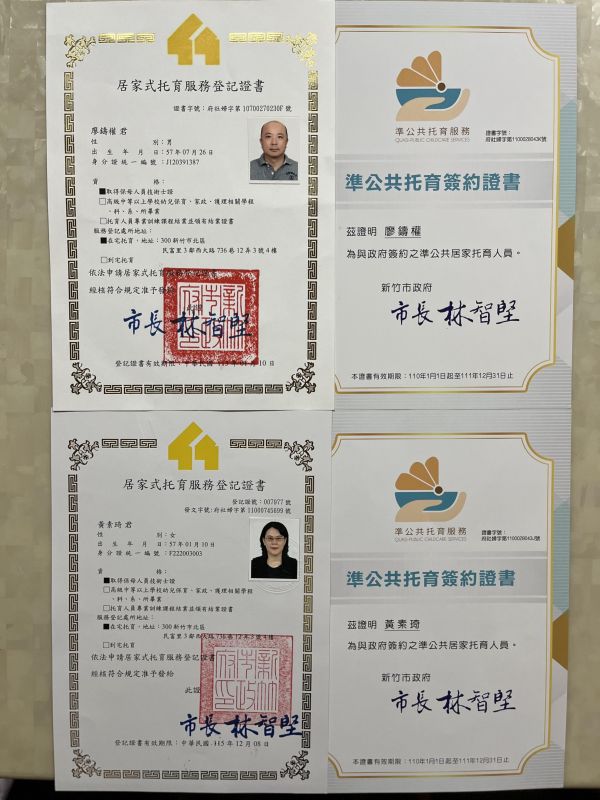 居家式托育服務登記證書
證書字號：府社婦字第10700270230F號
廖鑄權 君
性 別：男
出 生 年 月 日：57年07月26日
身分證統一編號：J120391387
資 格：
■取得保母人員技術士證
□高級中等以上學校幼兒保育、家政、護理相關學程
、科、系、所畢業
□托育人員專業訓練課程結業並領有結業證書
服務登記處所地址：
■在宅托育，地址：300新竹市北區
民富里3鄰西大路736巷12弄3號4樓
□到宅托育
依法申請居家式托育服務登記證書
經核符合規定准予發給
市長 林智堅
登記證書有效期限：中華民國 113年01月10日
準公共托育服務
QUASI-PUBLIC CHILDCARE SERVICES
證書字號：
府社婦字第1100028043K號
準公共托育簽約證書
茲證明 廖鑄權
為與政府簽約之準公共居家托育人員。
新竹市政府
市長 林智堅
本證書有效期限：110年1月1日起至111年12月31日止
居家式托育服務登記證書
登記證號：007977號
發文字號：府社婦字第11000745699號
黃素琦 君
性 別：女
出 生 年 月 日：57年01月10日
身分證統一編號：F222003003
資 格：
■取得保母人員技術士證
□高級中等以上學校幼兒保育、家政、護理相關學程
、科、系、所畢業
□托育人員專業訓練課程結業並領有結業證書
服務登記處所地址：
■在宅托育，地址：300新竹市北區
民富里3鄰西大路736巷12弄3號4樓
□到宅托育
依法申請居家式托育服務登記證書
經核符合規定准予發給
此證
市長 林智堅
登記證書有效期限：中華民國 115年12月08日
準公共托育服務
QUASI-PUBLIC CHILDCARE SERVICES
證書字號：
府社婦字第1100028043J號
準公共托育簽約證書
茲證明 黃素琦
為與政府簽約之準公共居家托育人員。
新竹市政府
市長 林智堅
本證書有效期限：110年1月1日起至111年12月31日止